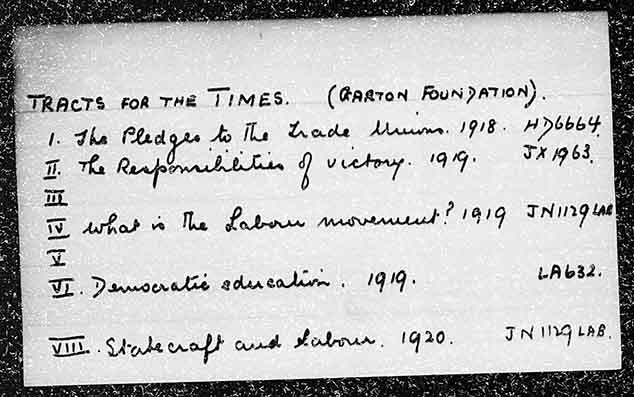 TRACTS FOR THE TIMES. (GARTON FOUNDATION).
1. The Pledges to the Trade Unions. 1918. HD6664.
II. The Responsibilities of victory. 1919. JX1963.
III
IV What is the Labour movement? 1919 JN1129 LAB
V
VI. Democratic education. 1919. LA632.
VIII. Statecraft and Labour. 1920. JN1129 LAB.